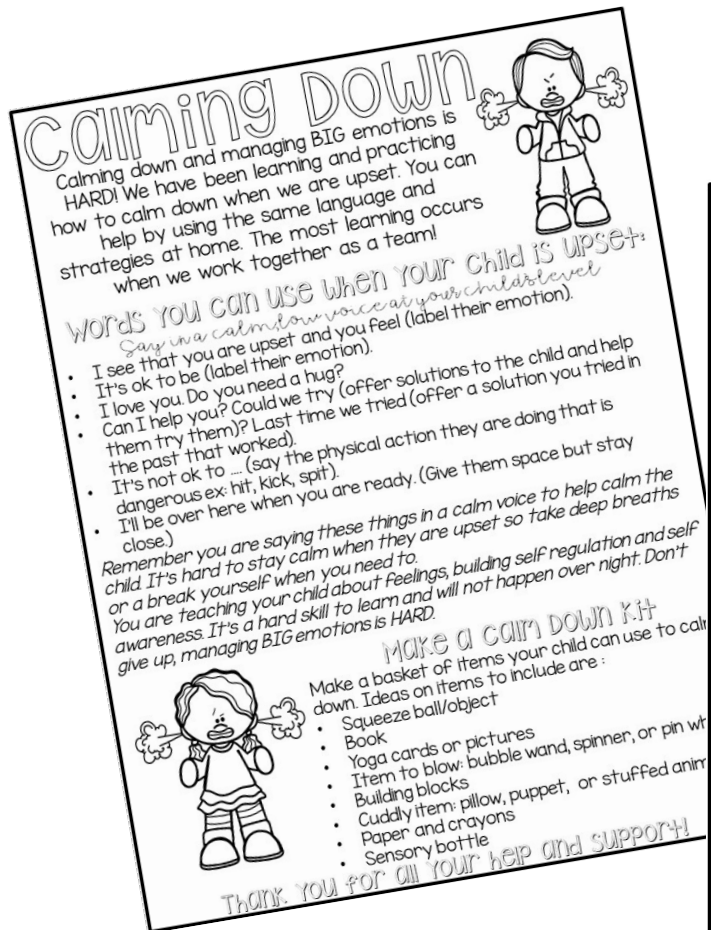 Calming Down
Calming down and managing BIG emotions is
HARD! We have been learning and practicing
how to calm down when we are upset. You can
help by using the same language and
strategies at home. The most learning occurs
when we work together as a team!
Words You Can Use When Your Child is Upset:
Say in a calm, low voice at your childs level
• I see that you are upset and you feel (label their emotion).
• It's ok to be (label their emotion).
• I love you. Do you need a hug?
• Can I help you? Could we try (offer solutions to the child and help
them try them)? Last time we tried (offer a solution you tried in
the past that worked).
• It's not ok to .... (say the physical action they are doing that is
dangerous ex: hit, kick, spit).
• I'll be over here when you are ready. (Give them space but stay
close.)
Remember you are saying these things in a calm voice to help calm the
child. It's hard to stay calm when they are upset so take deep breaths
or a break yourself when you need to.
You are teaching your child about feelings, building self regulation and self
awareness. It's a hard skill to learn and will not happen over night. Don't
give up, managing BIG emotions is HARD.
Make a Calm Down Kit
Make a basket of items your child can use to
down. Ideas on items to include are :
• Squeeze ball/object
• Book
• Yoga cards or pictures
• Item to blow: bubble wand, spinner, or pin
• Building blocks
• Cuddly item: pillow, puppet, or stuffed
• Paper and crayons
• Sensory bottle
Thank You for all Your help and support!